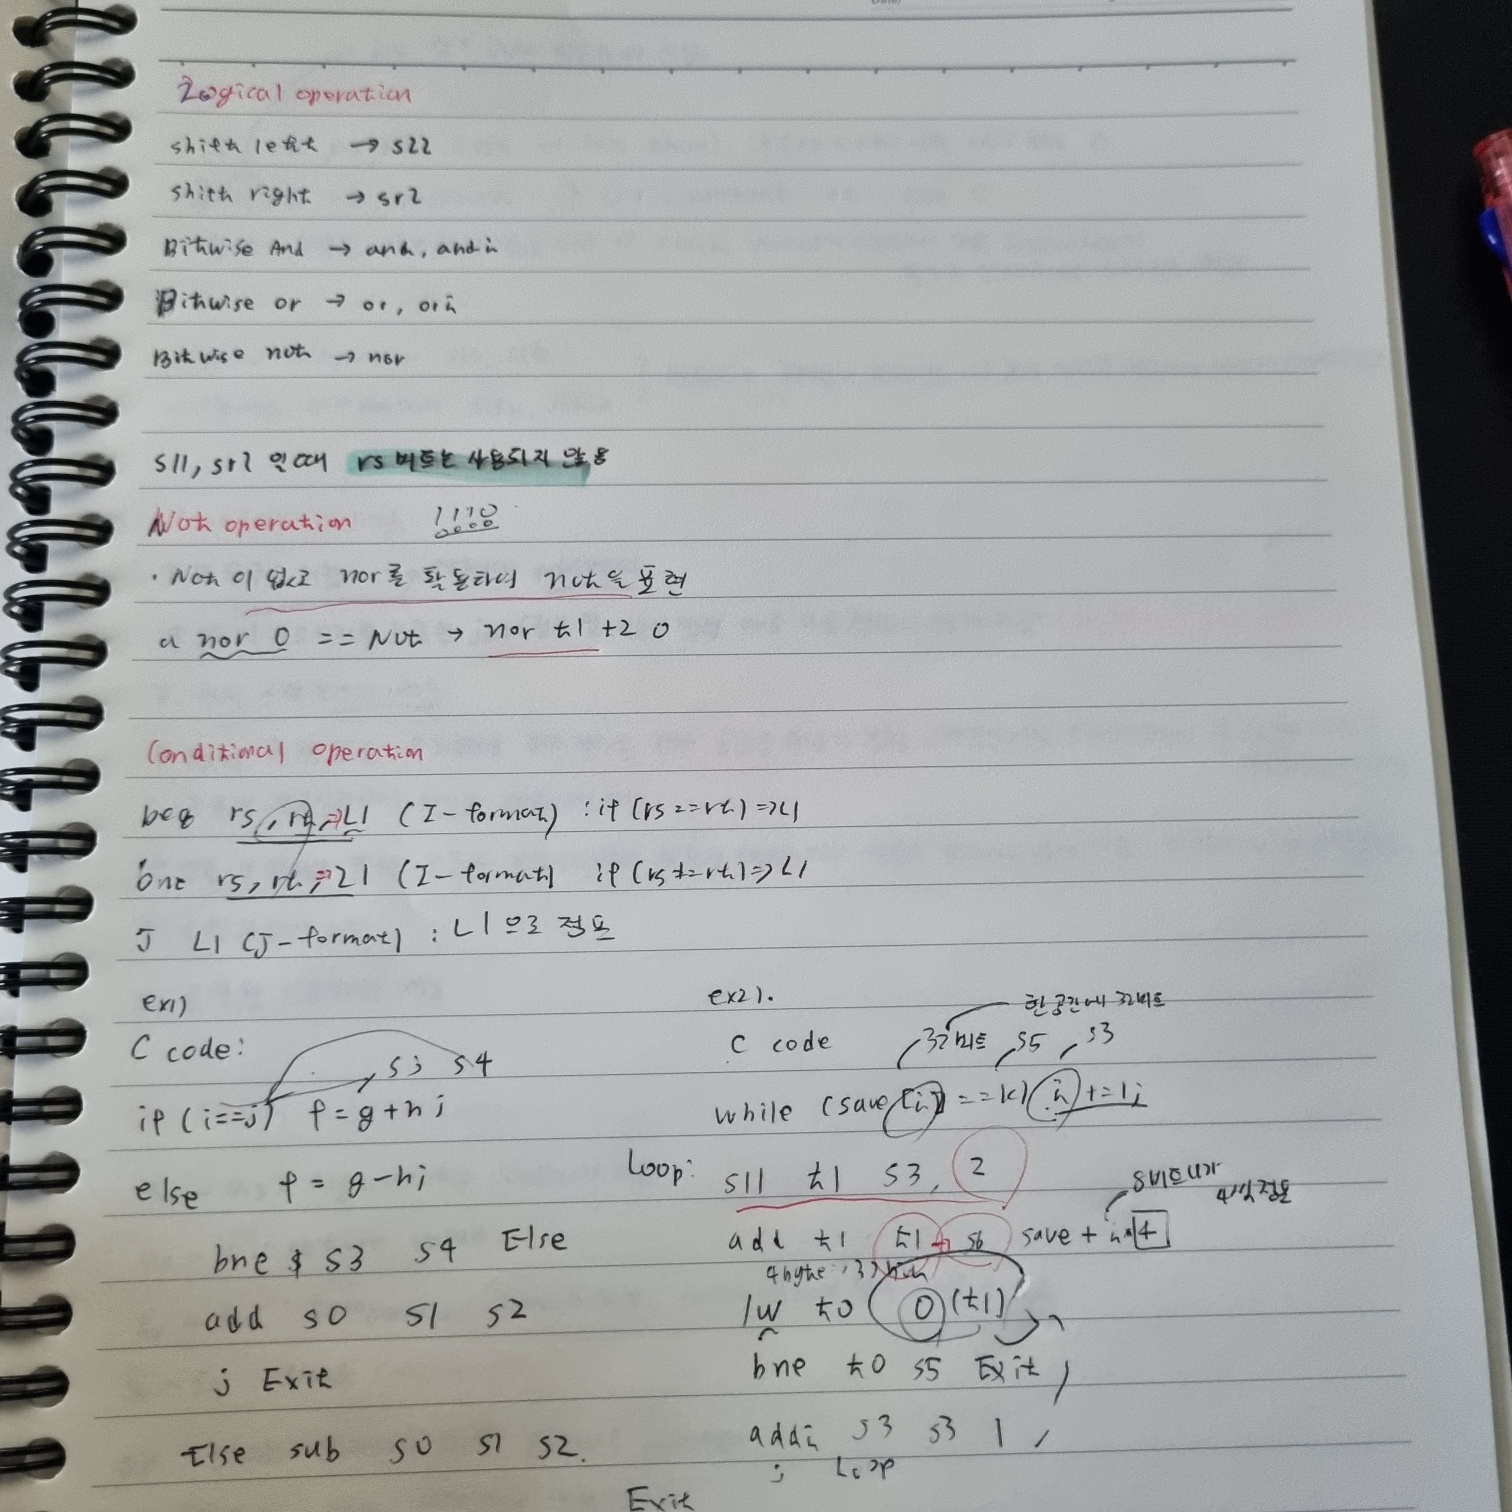 Logical operation
shith left → sll
shith right → srl
Bitwise And → and, andi
Bitwise or → or, ori
Bitwise not → nor
sll, srl 일때 rs 비트는 사용되지 않음
Not operation
· Not이 없고 nor를 활용하여 not을 표현
a nor 0 == Not → nor t1 t2 0
Conditional operation
beq rs, rt, L1 (I-format) : if (rs==rt) => L1
bne rs, rt, L1 (I-format) if (rs != rt) => L1
J L1 (J-format) : L1으로 점프
ex1)
C code:
s3 s4
if (i==j) f = g+h;
else f = g-h;
bne s3 s4 Else
add s0 s1 s2
j Exit
Else sub s0 s1 s2.
Exit
ex2).
한 공간에 32비트
C code 32비트 s5 s3
while (save[i] == k) i += 1;
Loop: sll t1 s3, 2
8비트니까
4씩 점프
add t1 t1 s6 save + i*4
4byte 32bit
lw t0 0(t1)
bne t0 s5 Exit
addi s3 s3 1
j Loop